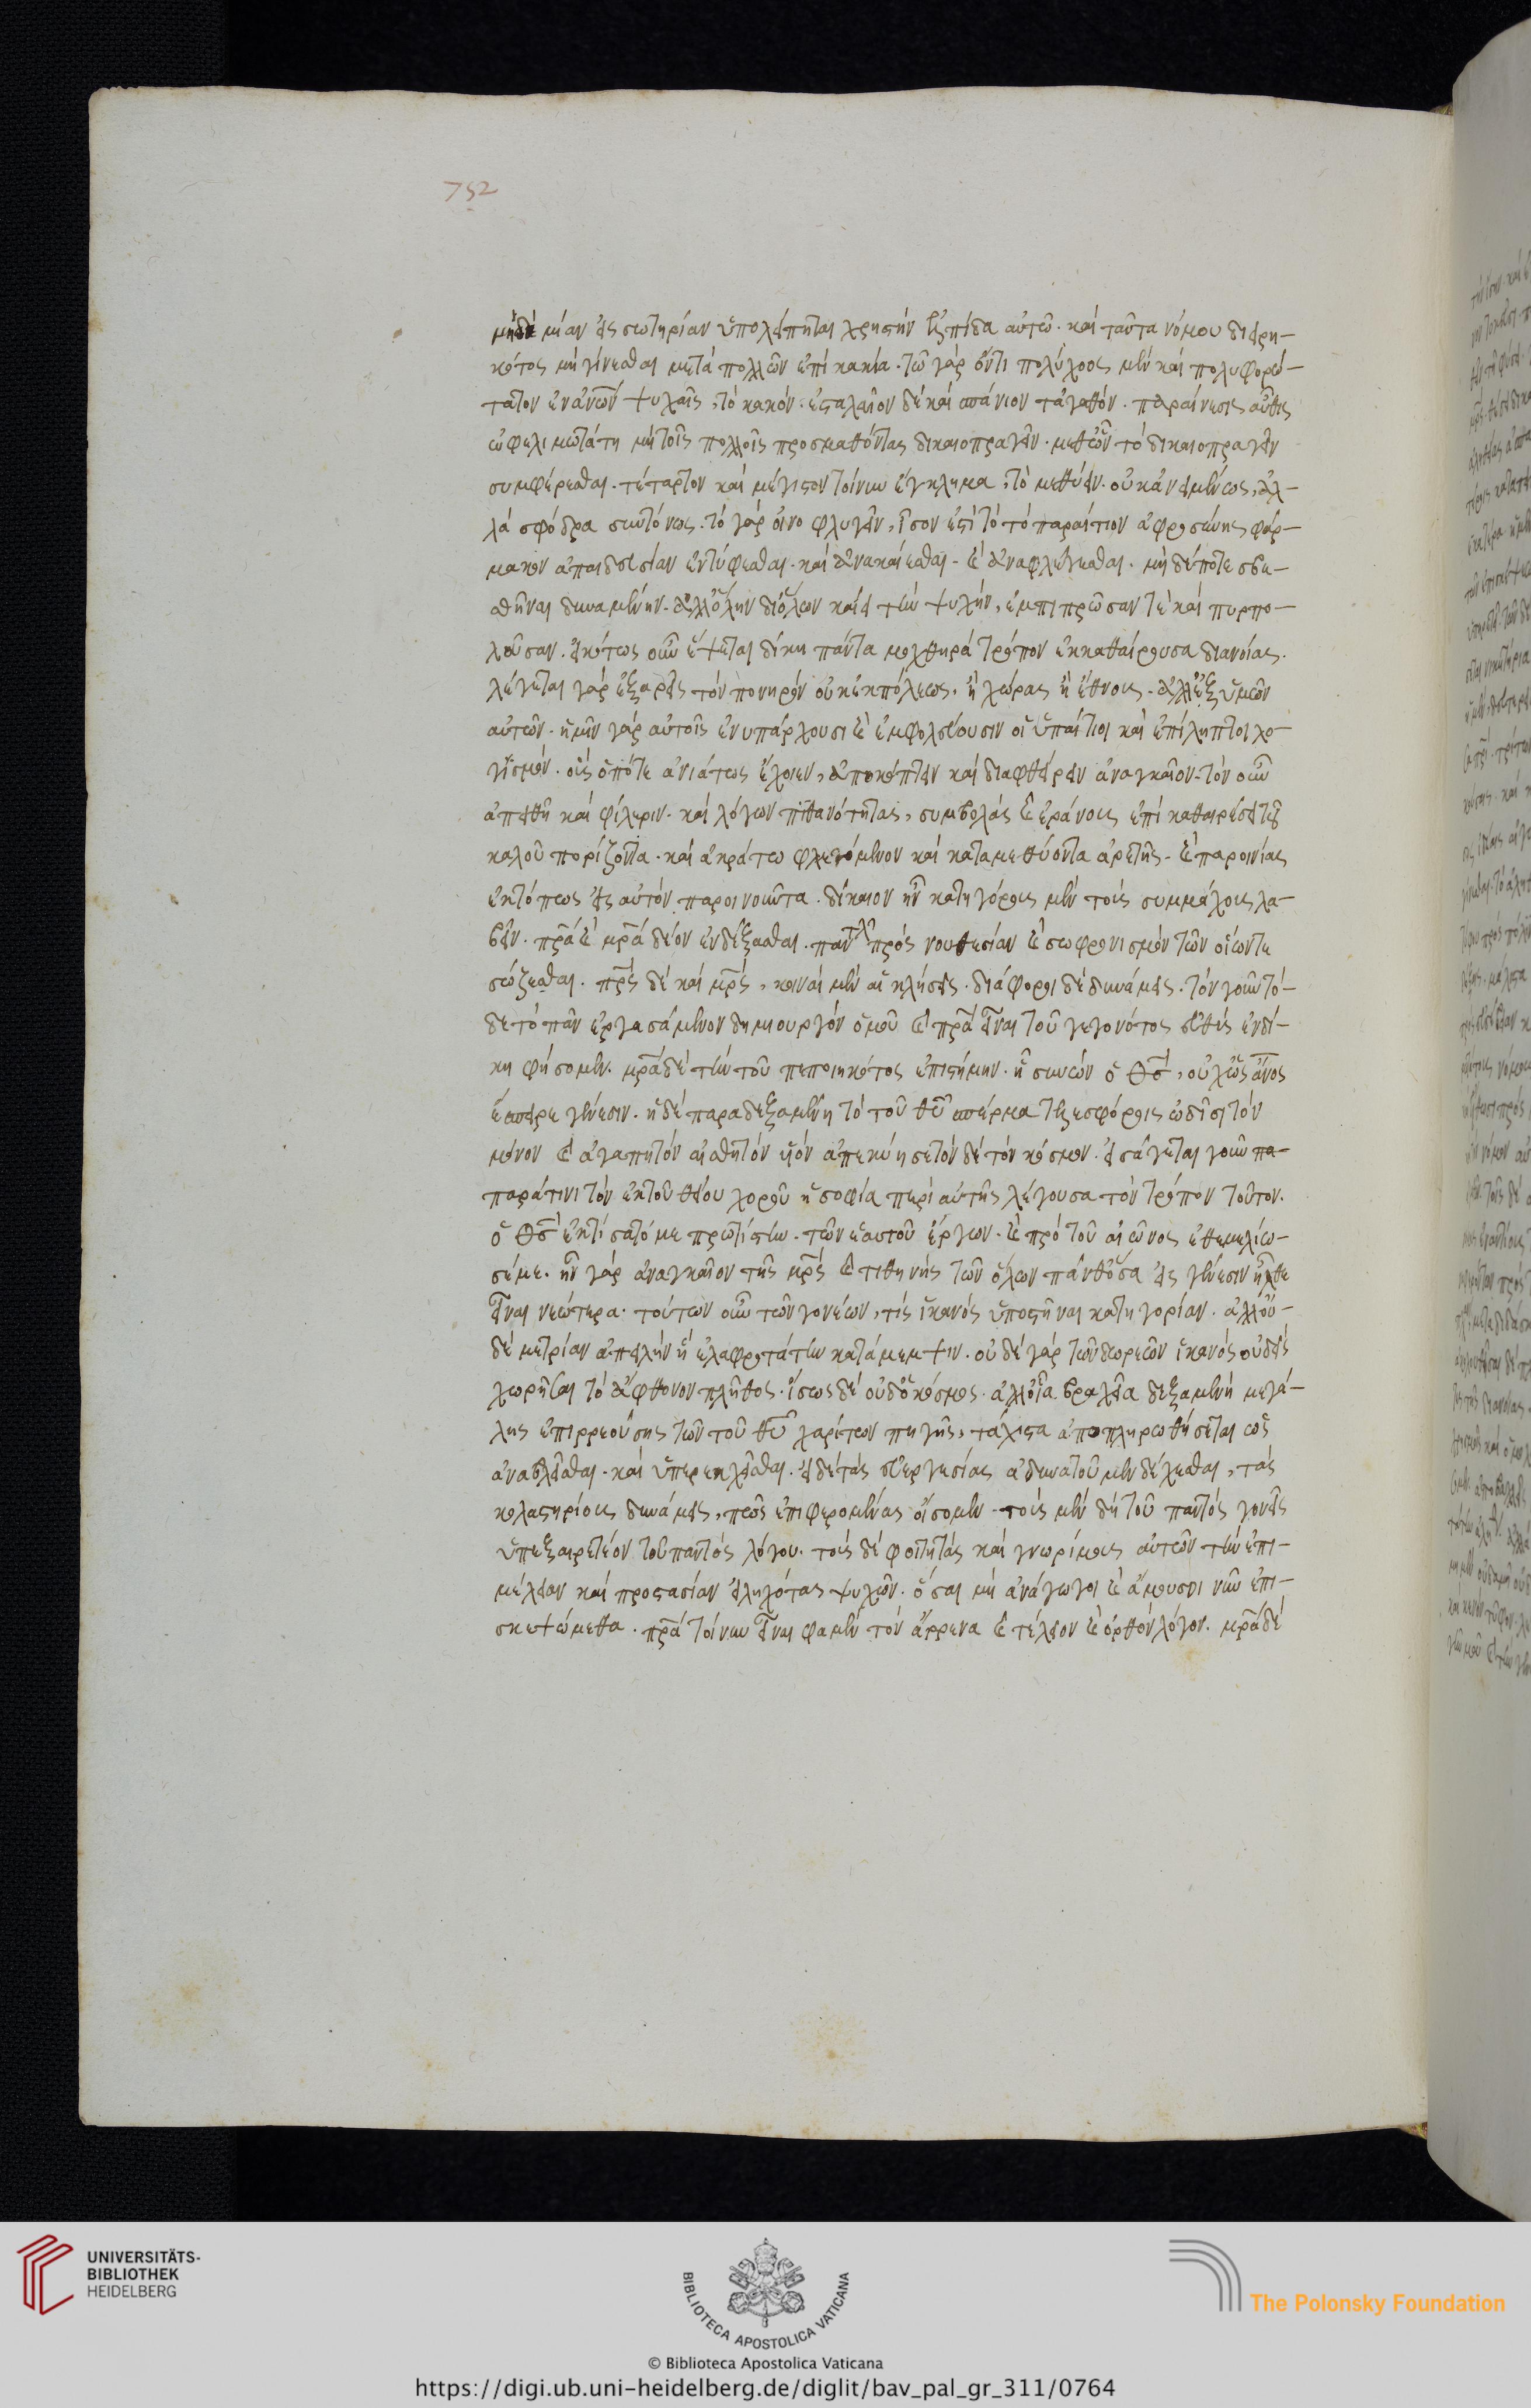 752
μηδὲ μίαν εἰς σωτηρίαν ὑπολείπηται χρηστὴν ἐλπίδα αὐτῶ. καὶ ταῦτα νόμου διειρη-
κότος μὴ γίνεσθαι μετὰ πολλῶν ἐπὶ κακία. τῶ γὰρ ὄντι πολύχους μὲν καὶ πολυφορώ-
τατον ἐν ἀνων ψυχαῖς, τὸ κακόν. ἐσταλμένον δὲ καὶ σπάνιον τἀγαθόν. παραίνεσις αὖθις
ὠφελιμωτάτη μὴ τοῖς πολλοῖς προσμαθόντας δικαιοπραγεῖν. μεθ' ὧν τὸ δικαιοπραγεῖν
συμφέρεσθαι. τέταρτον καὶ μέγιστον τοίνυν ἔγκλημα, τὸ μεθύειν. οὐκ ἀνειμένως, ἀλ-
λὰ σφόδρα συντόνως. τὸ γὰρ οἰνοφλυγεῖν, ἴσον ἐστὶ τὸ παραίτιον ἀφροσύνης φάρ-
μακον ἀπαιδευσίαν ἐντύφεσθαι. καὶ ἀνακαίεσθαι. καὶ ἀναφλέγεσθαι. μὴ δέποτε σβε-
σθῆναι δυναμένην. ἀλλ' ὅλην δι' ὅλων καὶ εἰ τὴν ψυχήν, ἐμπιπρῶσάν τε καὶ πυρπο-
λοῦσαν. εἰκότως οὖν ἕψεται δίκη πάντα μοχθηρὰ τρόπον ἐκκαθαίρουσα διανοίας.
λέγεται γὰρ ἐξαρεῖς τὸν πονηρὸν οὐκ ἐκ πόλεως, ἢ χώρας ἢ ἔθνους. ἀλλ' ἐξ ὑμῶν
αὐτῶν. ἡμῖν γὰρ αὐτοῖς ἐνυπάρχουσι καὶ ἐμφωλεύουσιν οἱ ὑπαίτιοι καὶ ἐπίληπτοι λο-
γισμόν. οὓς ὁπότε ἀνιάτως ἔχοιεν, ἀποκόπτειν καὶ διαφθείρειν ἀναγκαῖον. τὸν οὖν
ἀπειθῆ καὶ φίλεριν. καὶ λόγων πιθανότητας, συμβολὰς καὶ ἐράνους ἐπὶ καθαιρέσει τοῦ
καλοῦ πορίζοντα. καὶ ἀκράτω φλεγόμενον καὶ καταμεθύοντα ἀρετῆς. καὶ παροινίας
ἐκτόπως εἰς αὐτὸν παροινοῦντα. δίκαιον ἦν κατηγόρους μὲν τοὺς συμμάχους λα-
βεῖν. πρα καὶ μρα δέον ἐνδείξασθαι. παντελῆ πρὸς νουθεσίαν καὶ σωφρονισμὸν τῶν οἵων τε
σώζεσθαι. πρς δὲ καὶ μρς, κοιναὶ μὲν αἱ κλήσεις. διάφοροι δὲ δυνάμεις. τὸν γοῦν τό-
δε τὸ πᾶν ἐργασάμενον δημιουργὸν ὁμοῦ καὶ πρα εἶναι τοῦ γεγονότος εὐθὺς ἐνδί-
κη φήσομεν. μρα δὲ τὴν τοῦ πεποιηκότος ἐπιστήμην. ἧ συνὼν ὁ θς, οὐχ ὡς ἀνος
ἔσπειρε γένεσιν. ἡ δὲ παραδεξαμένη τὸ τοῦ θυ σπέρμα τελεσφόροις ὠδῖσι τὸν
μόνον καὶ ἀγαπητὸν αἰσθητὸν υἱὸν ἀπεκύησε τὸν δὲ τὸν κόσμον. εἰσάγεται γοῦν πα-
παρά τινι τῶν ἐκ τοῦ θείου χοροῦ ἡ σοφία περὶ αὐτῆς λέγουσα τὸν τρόπον τοῦτον.
ὁ θς ἐκτίσατό με πρωτίστην. τῶν ἑαυτοῦ ἔργων. καὶ πρὸ τοῦ αἰῶνος ἐθεμελίω-
σέ με. ἦν γὰρ ἀναγκαῖον τῆς μρς καὶ τιθηνῆς τῶν ὅλων πάνθ' ὅσα εἰς γένεσιν ἦλθε
εἶναι νεώτερα. τούτων οὖν τῶν γονέων, τίς ἱκανὸς ὑποστῆναι κατηγορίαν. ἀλλ' οὐ-
δὲ μετρίαν ἀπειλὴν ἢ ἐλαφροτάτην κατάμεμψιν. οὐδὲ γὰρ τῶν δωρεῶν ἱκανὸς οὐδεὶς
χωρῆσαι τὸ ἄφθονον πλῆθος. ἴσως δὲ οὐδ' ὁ κόσμος. ἀλλ' οἷα βραχεῖα δεξαμενὴ μεγά-
λης ἐπιρρεούσης τῶν τοῦ θυ χαρίτων πηγῆς, τάχιστα ἀποπληρωθήσεται ὡς
ἀναβλεῖσθαι. καὶ ὑπερεκχεῖσθαι. εἰ δὲ τὰς εὐεργεσίας ἀδυνατοῦμεν δέχεσθαι, τὰς
κολαστηρίους δυνάμεις, πῶς ἐπιφερομένας οἴσομεν. τοὺς μὲν δὴ τοῦ παντὸς γονεῖς
ὑπεξαιρετέον τοῦ παντὸς λόγου. τοὺς δὲ φοιτητὰς καὶ γνωρίμους αὐτῶν τὴν ἐπι-
μέλειαν καὶ προστασίαν εἰληχότας ψυχῶν. ὅσαι μὴ ἀνάγωγοι καὶ ἄμουσοι νῦν ἐπι-
σκεψώμεθα. πρα τοίνυν εἶναι φαμὲν τὸν ἄρρενα καὶ τέλειον καὶ ὀρθὸν λόγον. μρα δὲ
UNIVERSITÄTS-
BIBLIOTHEK
HEIDELBERG
BIBLIOTECA APOSTOLICA VATICANA
The Polonsky Foundation
© Biblioteca Apostolica Vaticana
https://digi.ub.uni-heidelberg.de/diglit/bav_pal_gr_311/0764